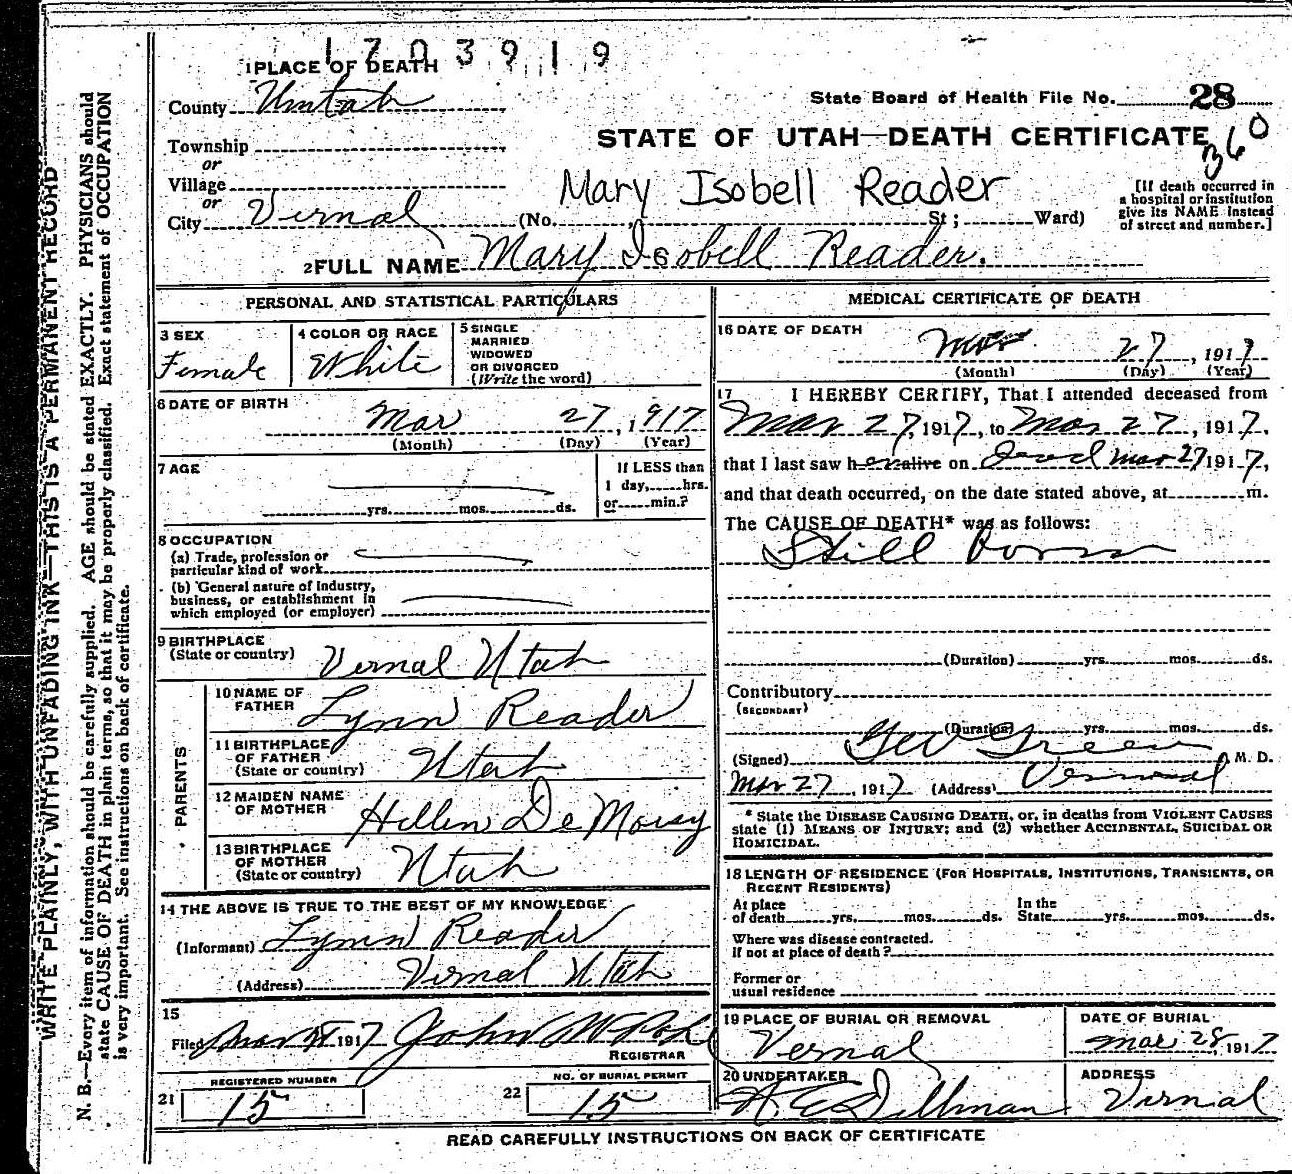 1703919
1 PLACE OF DEATH
County Uintah
State Board of Health File No. 28
360
STATE OF UTAH—DEATH CERTIFICATE
Township
or
Village
or
City Vernal
Mary Isobell Reader
(No. St; Ward)
[If death occurred in
a hospital or institution
give its NAME instead
of street and number.]
2 FULL NAME Mary Isobell Reader.
PERSONAL AND STATISTICAL PARTICULARS
3 SEX
Female
4 COLOR OR RACE
White
5 SINGLE
MARRIED
WIDOWED
OR DIVORCED
(Write the word)
6 DATE OF BIRTH
Mar 27, 1917
(Month) (Day) (Year)
7 AGE
yrs. mos. ds.
If LESS than
1 day, hrs.
or min.?
8 OCCUPATION
(a) Trade, profession or
particular kind of work
(b) General nature of industry,
business, or establishment in
which employed (or employer)
9 BIRTHPLACE
(State or country) Vernal Utah
PARENTS
10 NAME OF
FATHER Lynn Reader
11 BIRTHPLACE
OF FATHER
(State or country) Utah
12 MAIDEN NAME
OF MOTHER Hellen DeMoisy
13 BIRTHPLACE
OF MOTHER
(State or country) Utah
14 THE ABOVE IS TRUE TO THE BEST OF MY KNOWLEDGE
(Informant) Lynn Reader
(Address) Vernal Utah
15
Filed Mar 1917 John M
REGISTRAR
REGISTERED NUMBER
21 15
NO. OF BURIAL PERMIT
22 15
MEDICAL CERTIFICATE OF DEATH
16 DATE OF DEATH
Mar 27, 1917
(Month) (Day) (Year)
17 I HEREBY CERTIFY, That I attended deceased from
Mar 27, 1917, to Mar 27, 1917,
that I last saw h er alive on Dead Mar 27 1917,
and that death occurred, on the date stated above, at m.
The CAUSE OF DEATH* was as follows:
Still born
(Duration) yrs. mos. ds.
Contributory
(SECONDARY)
(Duration) yrs. mos. ds.
(Signed) Geo Green M. D.
Mar 27, 1917 (Address) Vernal
* State the DISEASE CAUSING DEATH, or, in deaths from VIOLENT CAUSES
state (1) MEANS OF INJURY; and (2) whether ACCIDENTAL, SUICIDAL OR
HOMICIDAL.
18 LENGTH OF RESIDENCE (FOR HOSPITALS, INSTITUTIONS, TRANSIENTS, OR
RECENT RESIDENTS)
At place
of death yrs. mos. ds.
In the
State yrs. mos. ds.
Where was disease contracted.
If not at place of death?
Former or
usual residence
19 PLACE OF BURIAL OR REMOVAL
Vernal
DATE OF BURIAL
Mar 28, 1917
20 UNDERTAKER
Dillman
ADDRESS
Vernal
READ CAREFULLY INSTRUCTIONS ON BACK OF CERTIFICATE
WRITE PLAINLY, WITH UNFADING INK—THIS IS A PERMANENT RECORD
N. B.—Every item of information should be carefully supplied. AGE should be stated EXACTLY. PHYSICIANS should
state CAUSE OF DEATH in plain terms, so that it may be properly classified. Exact statement of OCCUPATION
is very important. See instructions on back of certificate.